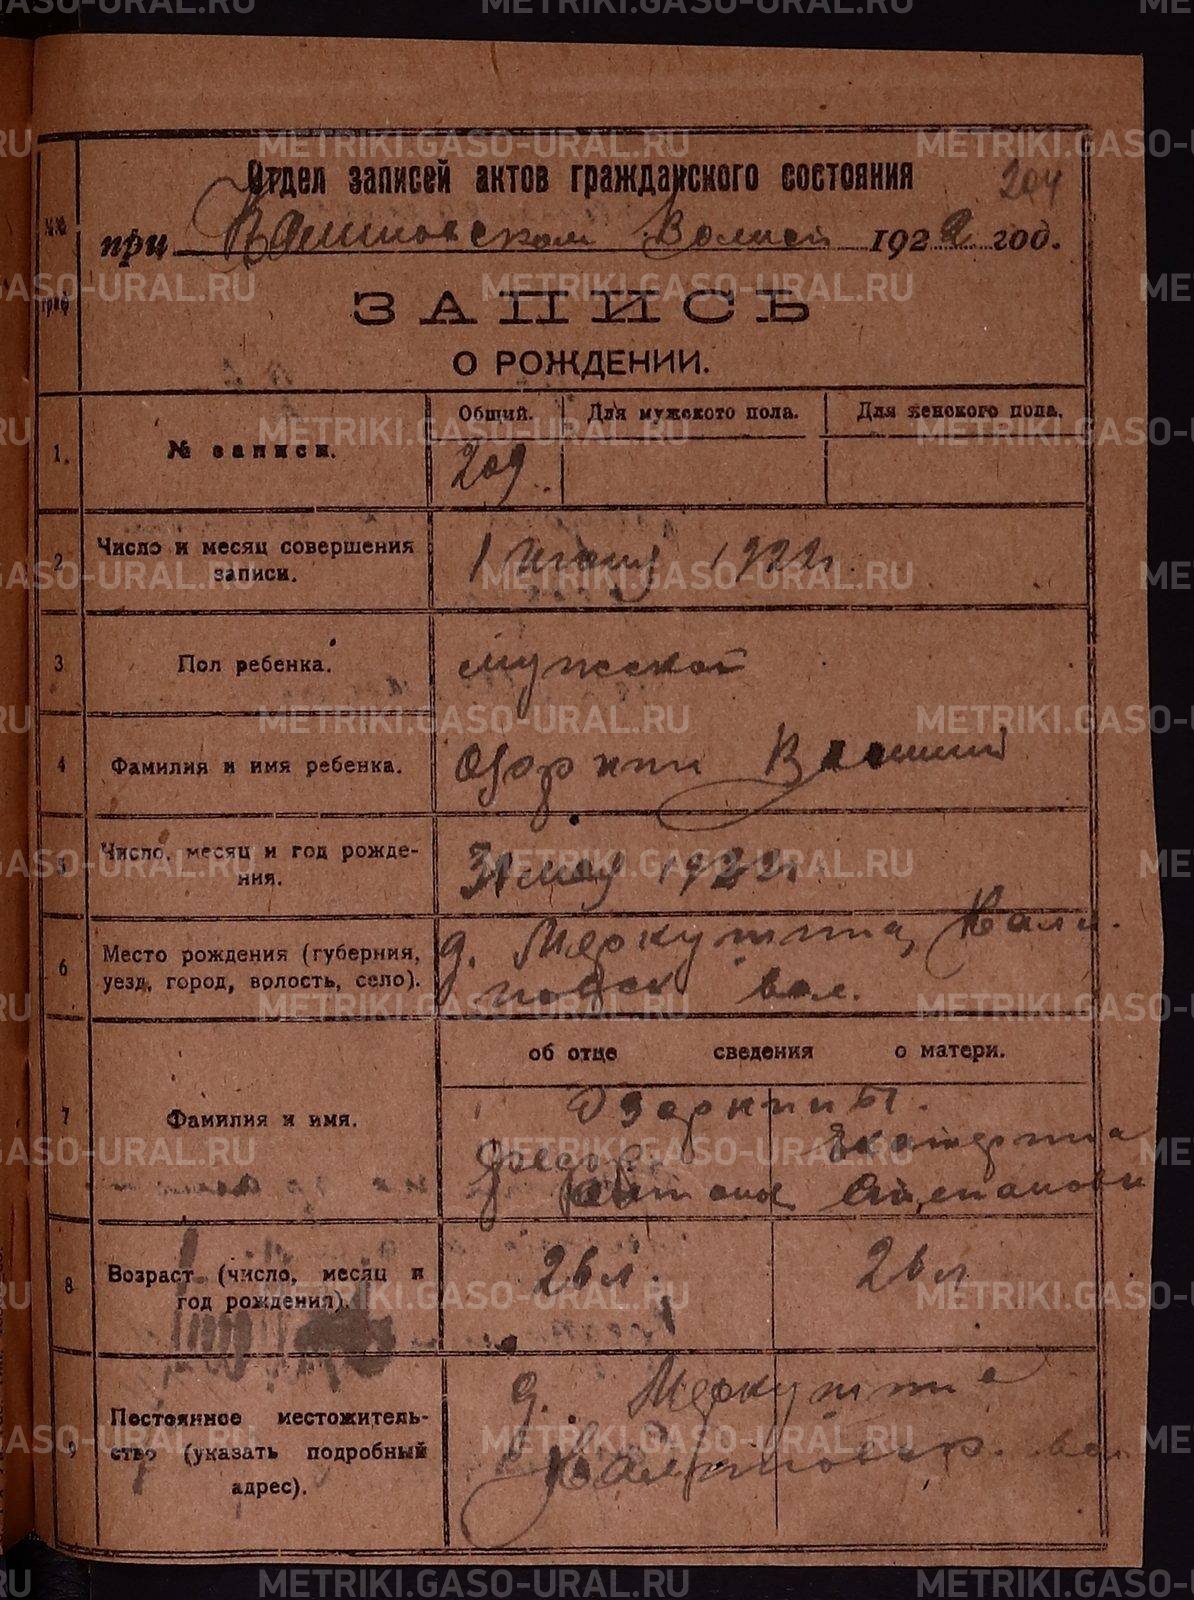 METRIKI.GASO-URAL.RU
Отдел записей актов гражданского состояния
204
№№ граф
при Волисп 1922 год.
ЗАПИСЬ
О РОЖДЕНИИ.
Общий. Для мужского пола. Для женского пола.
1. № записи. 209
2 Число и месяц совершения
записи. 1 июня 1922 г.
3 Пол ребенка. мужской
4 Фамилия и имя ребенка. Озорнин
5 Число, месяц и год рожде-
ния. 31 мая 1922 г.
6 Место рождения (губерния, д. Меркушина,
уезд, город, волость, село). вол.
об отце сведения о матери.
7 Фамилия и имя. Озорнины.
Федор Екатерина
Степанова
8 Возраст (число, месяц и
год рождения). 26 л. 26 л
9 Постоянное местожитель- д. Меркушина
ство (указать подробный вол
адрес).